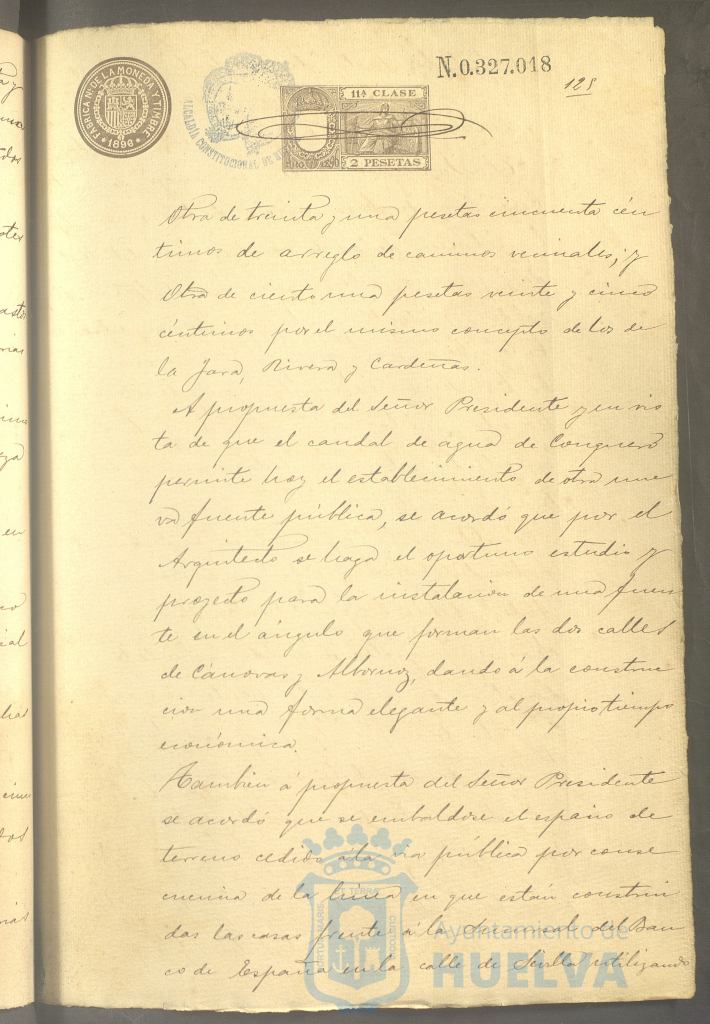 FÁBRICA Nl. DE LA MONEDA Y TIMBRE
1896
ALCALDIA CONSTITUCIONAL DE
11ª CLASE
2 PESETAS
N.0.327.018
125
Otra de treinta y una pesetas cincuenta cén
timos de arreglo de caminos vecinales; y
Otra de ciento una pesetas veinte y cinco
céntimos por el mismo concepto de los de
la Jara, Rivera y Cardeñas.
A propuesta del Señor Presidente y en vis
ta de que el caudal de agua de Conquero
permite hoy el establecimiento de otra nue
va fuente pública, se acordó que por el
Arquitecto se haga el oportuno estudio y
proyecto para la instalacion de una fuen
te en el ángulo que forman las dos calles
de Cánovas y Albornoz, dando á la construc
cion una forma elegante y al propio tiempo
económica.
Tambien á propuesta del Señor Presidente
se acordó que se embaldose el espacio de
terreno cedido á la via pública por conse
cuencia de la línea en que están construi
das las casas frente á la Sucursal del Ban
co de España en la calle de Sevilla utilizando
PORTUS MARIS ET TERRAE CUSTODIA
Ayuntamiento de
HUELVA